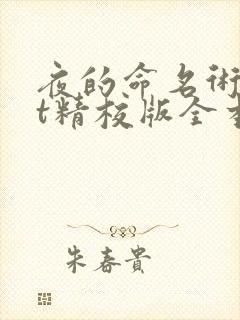 夜的命名術
t精校版全
朱春貴